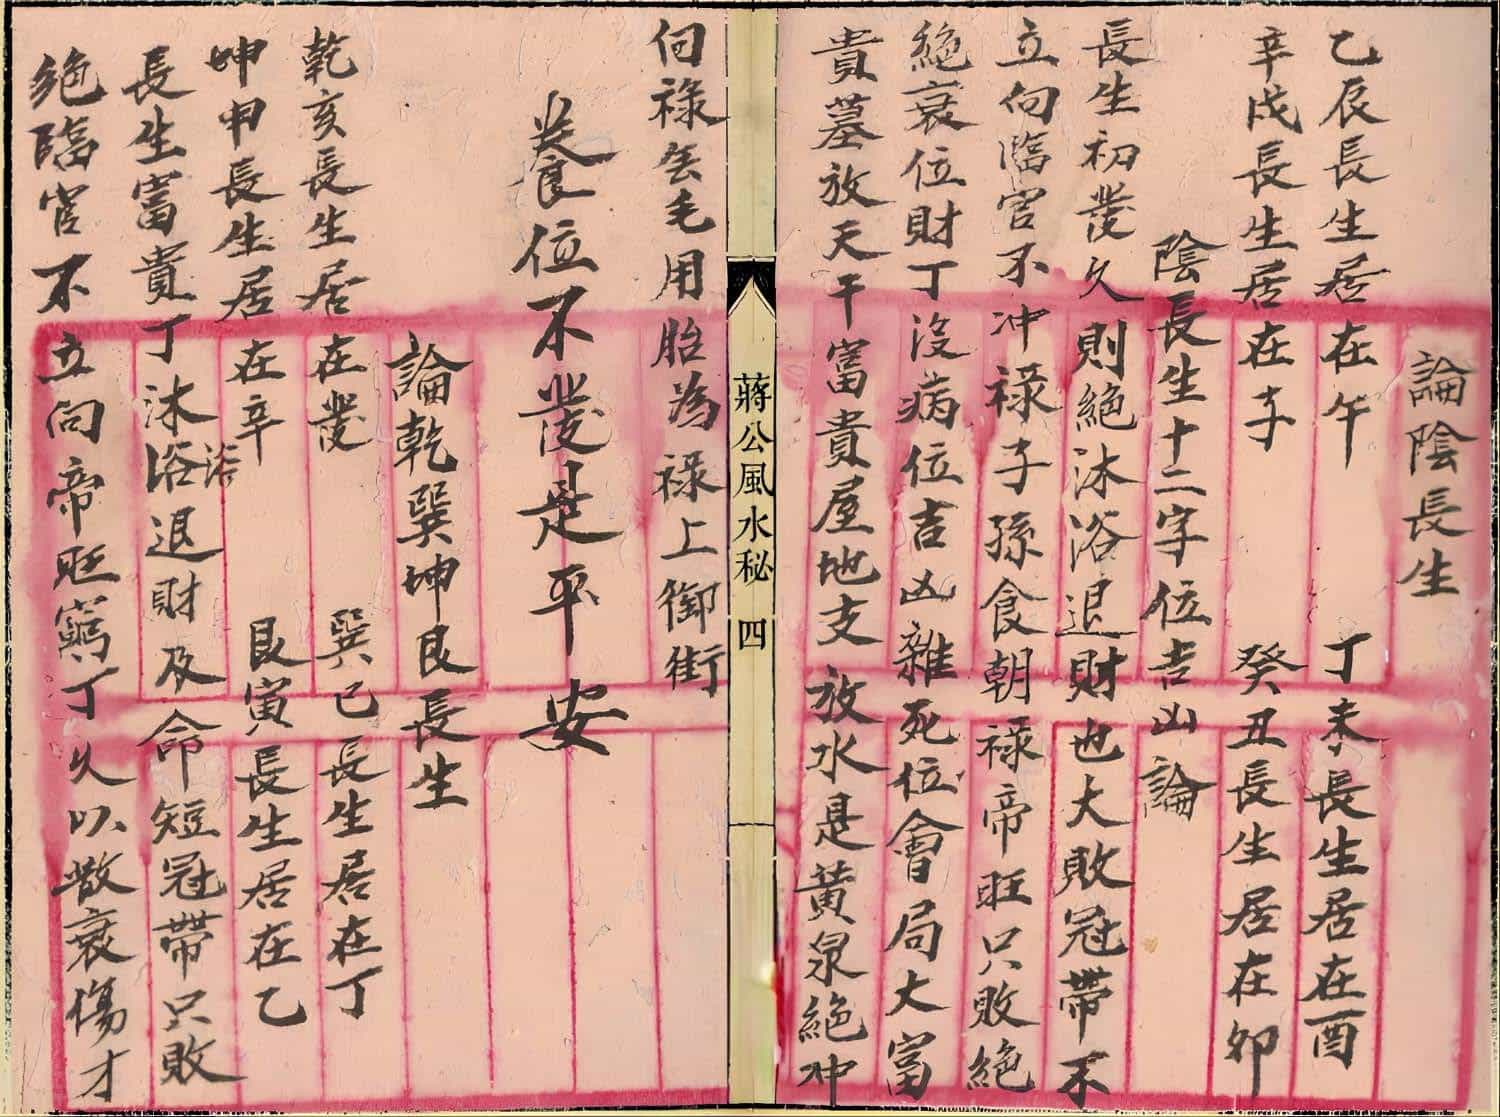 論陰長生
乙辰長生居在午 丁未長生居在酉
辛戌長生居在子 癸丑長生居在卯
陰長生十二字位吉凶論
長生初發久則絕沐浴退財也大敗冠帶不
立向臨官不冲祿子孫食朝祿帝旺只敗絕
絕衰位財丁沒病位吉凶雜死位會局大富
貴墓放天干富貴屋地支放水是黃泉絕冲
蔣公風水秘 四
向祿去毛用胎為祿上御街
養位不發是平安
論乾巽坤艮長生
乾亥長生居在發 巽巳長生居在丁
坤申長生居在辛 艮寅長生居在乙
長生富貴丁沐浴退財及命短冠帶只敗
浴
絕臨官不立向帝旺窮丁久以敗衰傷才